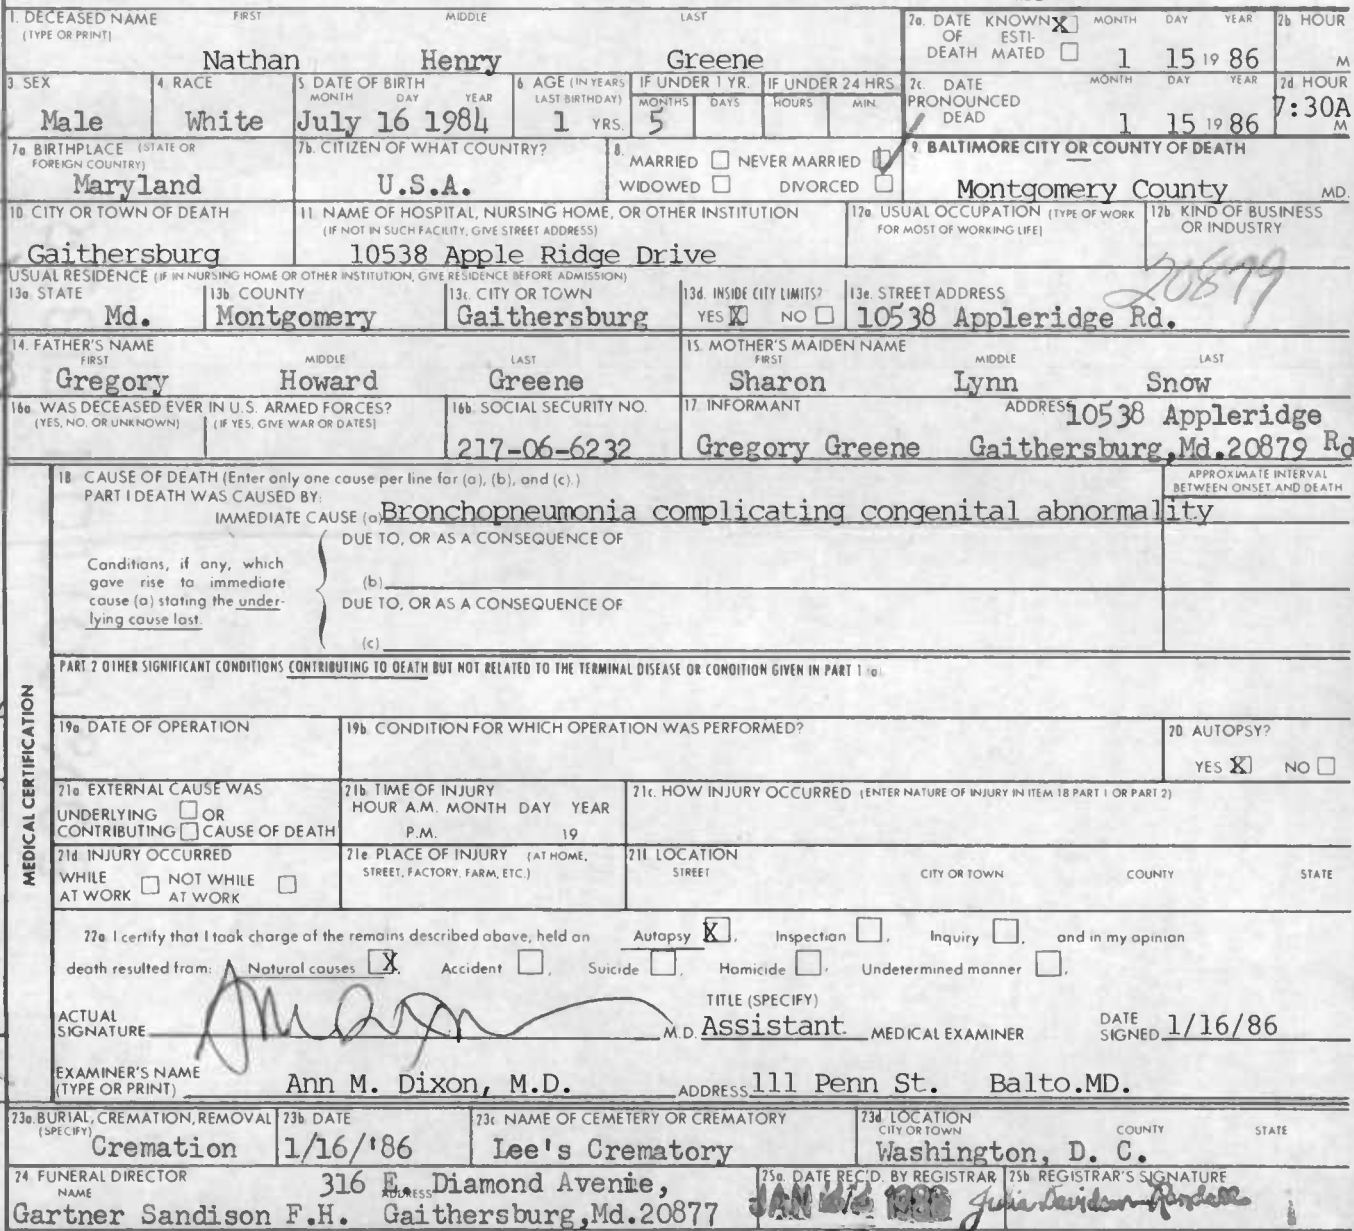 1. DECEASED NAME (TYPE OR PRINT) FIRST MIDDLE LAST
Nathan Henry Greene
2a. DATE OF DEATH KNOWN X ESTIMATED MONTH DAY YEAR
1 15 19 86
2b HOUR M
3 SEX
Male
4 RACE
White
5 DATE OF BIRTH MONTH DAY YEAR
July 16 1984
6 AGE (IN YEARS LAST BIRTHDAY)
1 YRS.
IF UNDER 1 YR. MONTHS DAYS
5
IF UNDER 24 HRS. HOURS MIN.
2c. DATE PRONOUNCED DEAD MONTH DAY YEAR
1 15 19 86
2d HOUR
7:30A M
7a BIRTHPLACE (STATE OR FOREIGN COUNTRY)
Maryland
7b. CITIZEN OF WHAT COUNTRY?
U.S.A.
8. MARRIED NEVER MARRIED
WIDOWED DIVORCED
9. BALTIMORE CITY OR COUNTY OF DEATH
Montgomery County MD.
10. CITY OR TOWN OF DEATH
Gaithersburg
11. NAME OF HOSPITAL, NURSING HOME, OR OTHER INSTITUTION
(IF NOT IN SUCH FACILITY, GIVE STREET ADDRESS)
10538 Apple Ridge Drive
12a USUAL OCCUPATION (TYPE OF WORK FOR MOST OF WORKING LIFE)
12b. KIND OF BUSINESS OR INDUSTRY
20879
USUAL RESIDENCE (IF IN NURSING HOME OR OTHER INSTITUTION, GIVE RESIDENCE BEFORE ADMISSION)
13a STATE
Md.
13b COUNTY
Montgomery
13c. CITY OR TOWN
Gaithersburg
13d. INSIDE CITY LIMITS?
YES X NO
13e. STREET ADDRESS
10538 Appleridge Rd.
14. FATHER'S NAME FIRST MIDDLE LAST
Gregory Howard Greene
15. MOTHER'S MAIDEN NAME FIRST MIDDLE LAST
Sharon Lynn Snow
16a WAS DECEASED EVER IN U.S. ARMED FORCES?
(YES, NO, OR UNKNOWN) (IF YES, GIVE WAR OR DATES)
16b SOCIAL SECURITY NO.
217-06-6232
17 INFORMANT ADDRESS 10538 Appleridge
Gregory Greene Gaithersburg,Md.20879 Rd
MEDICAL CERTIFICATION
18 CAUSE OF DEATH (Enter only one cause per line for (a), (b), and (c).)
APPROXIMATE INTERVAL BETWEEN ONSET AND DEATH
PART I DEATH WAS CAUSED BY:
IMMEDIATE CAUSE (a) Bronchopneumonia complicating congenital abnormality
DUE TO, OR AS A CONSEQUENCE OF
Conditions, if any, which
gave rise to immediate
cause (a) stating the under-
lying cause last.
(b)
DUE TO, OR AS A CONSEQUENCE OF
(c)
PART 2 OTHER SIGNIFICANT CONDITIONS CONTRIBUTING TO DEATH BUT NOT RELATED TO THE TERMINAL DISEASE OR CONDITION GIVEN IN PART 1 (a)
19a DATE OF OPERATION
19b CONDITION FOR WHICH OPERATION WAS PERFORMED?
20 AUTOPSY?
YES X NO
21a EXTERNAL CAUSE WAS
UNDERLYING OR
CONTRIBUTING CAUSE OF DEATH
21b TIME OF INJURY
HOUR A.M. MONTH DAY YEAR
P.M. 19
21c. HOW INJURY OCCURRED (ENTER NATURE OF INJURY IN ITEM 18 PART 1 OR PART 2)
21d INJURY OCCURRED
WHILE AT WORK NOT WHILE AT WORK
21e PLACE OF INJURY (AT HOME, STREET, FACTORY, FARM, ETC.)
21f LOCATION
STREET CITY OR TOWN COUNTY STATE
22a I certify that I took charge of the remains described above, held an Autopsy X, Inspection , Inquiry , and in my opinion
death resulted from: Natural causes X, Accident , Suicide , Homicide , Undetermined manner .
ACTUAL SIGNATURE M.D.
TITLE (SPECIFY)
Assistant MEDICAL EXAMINER
DATE SIGNED 1/16/86
EXAMINER'S NAME (TYPE OR PRINT) Ann M. Dixon, M.D. ADDRESS 111 Penn St. Balto.MD.
23a BURIAL, CREMATION, REMOVAL (SPECIFY)
Cremation
23b DATE
1/16/'86
23c NAME OF CEMETERY OR CREMATORY
Lee's Crematory
23d LOCATION CITY OR TOWN COUNTY STATE
Washington, D. C.
24 FUNERAL DIRECTOR NAME
Gartner Sandison F.H.
ADDRESS
316 E. Diamond Avenie,
Gaithersburg,Md.20877
25a. DATE REC'D. BY REGISTRAR
JAN 1986
25b REGISTRAR'S SIGNATURE
Julia Davidson-Randall